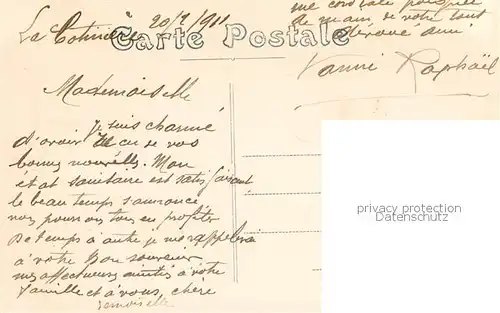 La Cotinière 20/2/1911
me cordiale poignée
de main de votre tout
dévoué ami
Carte Postale
Vanni Raphaël
Mademoiselle
Je suis charmé
d'avoir eu de vos
bonnes nouvelles. Mon
état sanitaire est satisfaisant
le beau temps s'avance,
nous pourrons tous en profiter
De temps à autre je me rappellerai
à votre bon souvenir
mes affectueuses amitiés à votre
famille et à vous, chère
demoiselle
privacy protection
Datenschutz